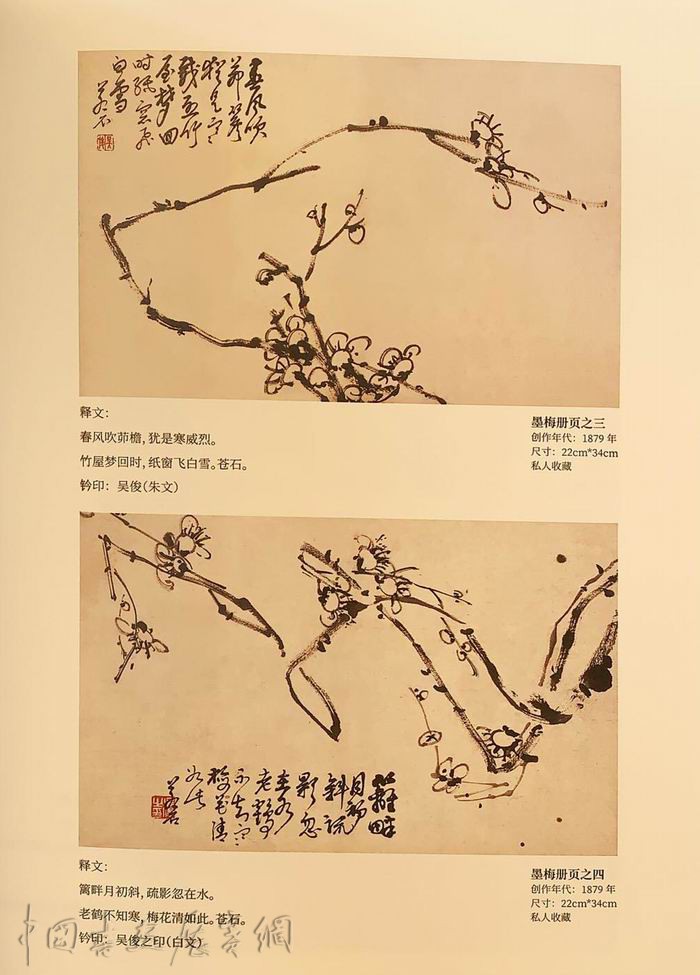 春風吹
茆簷
猶是寒
威烈竹
屋夢回
時紙窗飛
白雪
蒼石
释文：
春风吹茆檐，犹是寒威烈。
竹屋梦回时，纸窗飞白雪。苍石。
钤印：吴俊（朱文）
墨梅册页之三
创作年代：1879 年
尺寸：22cm*34cm
私人收藏
籬畔
月初
斜疏
影忽
在水
老鶴
不知寒
梅花清
如此
蒼石
释文：
篱畔月初斜，疏影忽在水。
老鹤不知寒，梅花清如此。苍石。
钤印：吴俊之印（白文）
墨梅册页之四
创作年代：1879 年
尺寸：22cm*34cm
私人收藏
中國書畫展賽網